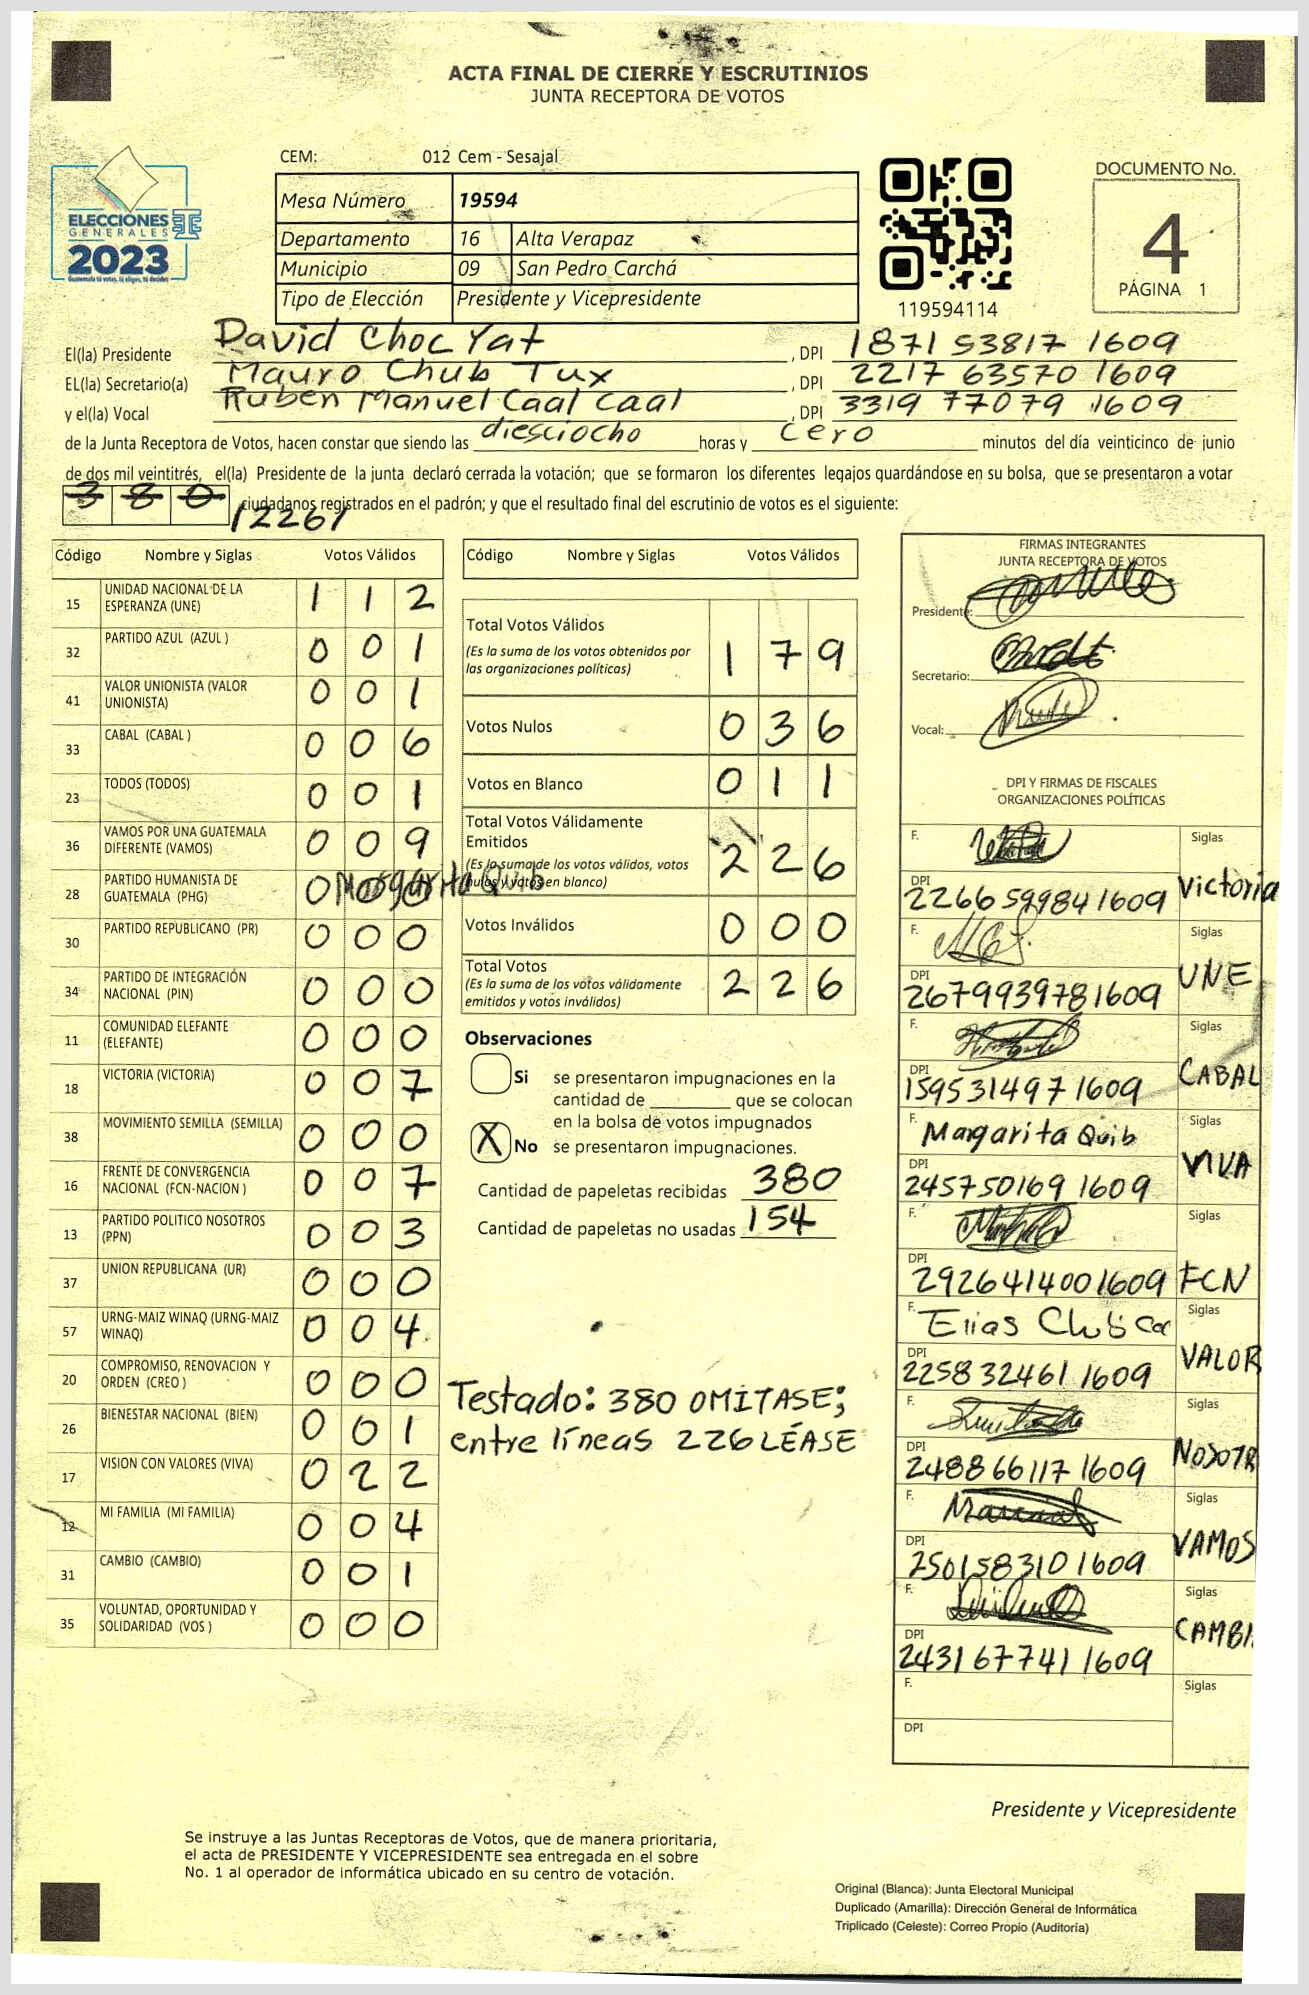 ACTA FINAL DE CIERRE Y ESCRUTINIOS
JUNTA RECEPTORA DE VOTOS
CEM: 012 Cem - Sesajal
Mesa Número 19594
Departamento 16 Alta Verapaz
Municipio 09 San Pedro Carchá
Tipo de Elección Presidente y Vicepresidente
ELECCIONES
GENERALES
2023
Guatemala tú votas, tú eliges, tú decides
119594114
DOCUMENTO No.
4
PÁGINA 1
El(la) Presidente David Choc Yat , DPI 1871 53817 1609
EL(la) Secretario(a) Mauro Chub Tux , DPI 2217 63570 1609
y el(la) Vocal Ruben Manuel Caal Caal , DPI 3319 77079 1609
de la Junta Receptora de Votos, hacen constar que siendo las diesciocho horas y cero minutos del día veinticinco de junio
de dos mil veintitrés, el(la) Presidente de la junta declaró cerrada la votación; que se formaron los diferentes legajos guardándose en su bolsa, que se presentaron a votar
380 ciudadanos registrados en el padrón; y que el resultado final del escrutinio de votos es el siguiente:
/226/
Código Nombre y Siglas Votos Válidos
15 UNIDAD NACIONAL DE LA ESPERANZA (UNE) 1 1 2
32 PARTIDO AZUL (AZUL ) 0 0 1
41 VALOR UNIONISTA (VALOR UNIONISTA) 0 0 1
33 CABAL (CABAL ) 0 0 6
23 TODOS (TODOS) 0 0 1
36 VAMOS POR UNA GUATEMALA DIFERENTE (VAMOS) 0 0 9
28 PARTIDO HUMANISTA DE GUATEMALA (PHG) 0 0 0 Margarita Quib
30 PARTIDO REPUBLICANO (PR) 0 0 0
34 PARTIDO DE INTEGRACIÓN NACIONAL (PIN) 0 0 0
11 COMUNIDAD ELEFANTE (ELEFANTE) 0 0 0
18 VICTORIA (VICTORIA) 0 0 7
38 MOVIMIENTO SEMILLA (SEMILLA) 0 0 0
16 FRENTE DE CONVERGENCIA NACIONAL (FCN-NACION ) 0 0 7
13 PARTIDO POLITICO NOSOTROS (PPN) 0 0 3
37 UNION REPUBLICANA (UR) 0 0 0
57 URNG-MAIZ WINAQ (URNG-MAIZ WINAQ) 0 0 4
20 COMPROMISO, RENOVACION Y ORDEN (CREO ) 0 0 0
26 BIENESTAR NACIONAL (BIEN) 0 0 1
17 VISION CON VALORES (VIVA) 0 2 2
12 MI FAMILIA (MI FAMILIA) 0 0 4
31 CAMBIO (CAMBIO) 0 0 1
35 VOLUNTAD, OPORTUNIDAD Y SOLIDARIDAD (VOS ) 0 0 0
Código Nombre y Siglas Votos Válidos
Total Votos Válidos 1 7 9
(Es la suma de los votos obtenidos por
las organizaciones políticas)
Votos Nulos 0 3 6
Votos en Blanco 0 1 1
Total Votos Válidamente
Emitidos 2 2 6
(Es la suma de los votos válidos, votos
nulos y votos en blanco)
Votos Inválidos 0 0 0
Total Votos 2 2 6
(Es la suma de los votos válidamente
emitidos y votos inválidos)
Observaciones
Si se presentaron impugnaciones en la
cantidad de ________ que se colocan
en la bolsa de votos impugnados
X No se presentaron impugnaciones.
Cantidad de papeletas recibidas 380
Cantidad de papeletas no usadas 154
Testado: 380 OMÍTASE;
entre líneas 226 LÉASE
FIRMAS INTEGRANTES
JUNTA RECEPTORA DE VOTOS
Presidente:
Secretario:
Vocal:
DPI Y FIRMAS DE FISCALES
ORGANIZACIONES POLÍTICAS
F. Siglas
DPI 2266 59984 1609 Victoria
F. Siglas
DPI 2679939781609 UNE
F. Siglas
DPI 159531497 1609 CABAL
F. Margarita Quib Siglas
DPI 245750169 1609 VIVA
F. Siglas
DPI 2926414001609 FCN
F. Siglas
DPI 225832461 1609 VALOR
F. Siglas
DPI 248866117 1609 NOSOTR
F. Siglas
DPI 250158310 1609 VAMOS
F. Siglas
DPI 243167741 1609 CAMBI
F. Siglas
DPI
Presidente y Vicepresidente
Se instruye a las Juntas Receptoras de Votos, que de manera prioritaria,
el acta de PRESIDENTE Y VICEPRESIDENTE sea entregada en el sobre
No. 1 al operador de informática ubicado en su centro de votación.
Original (Blanca): Junta Electoral Municipal
Duplicado (Amarilla): Dirección General de Informática
Triplicado (Celeste): Correo Propio (Auditoría)